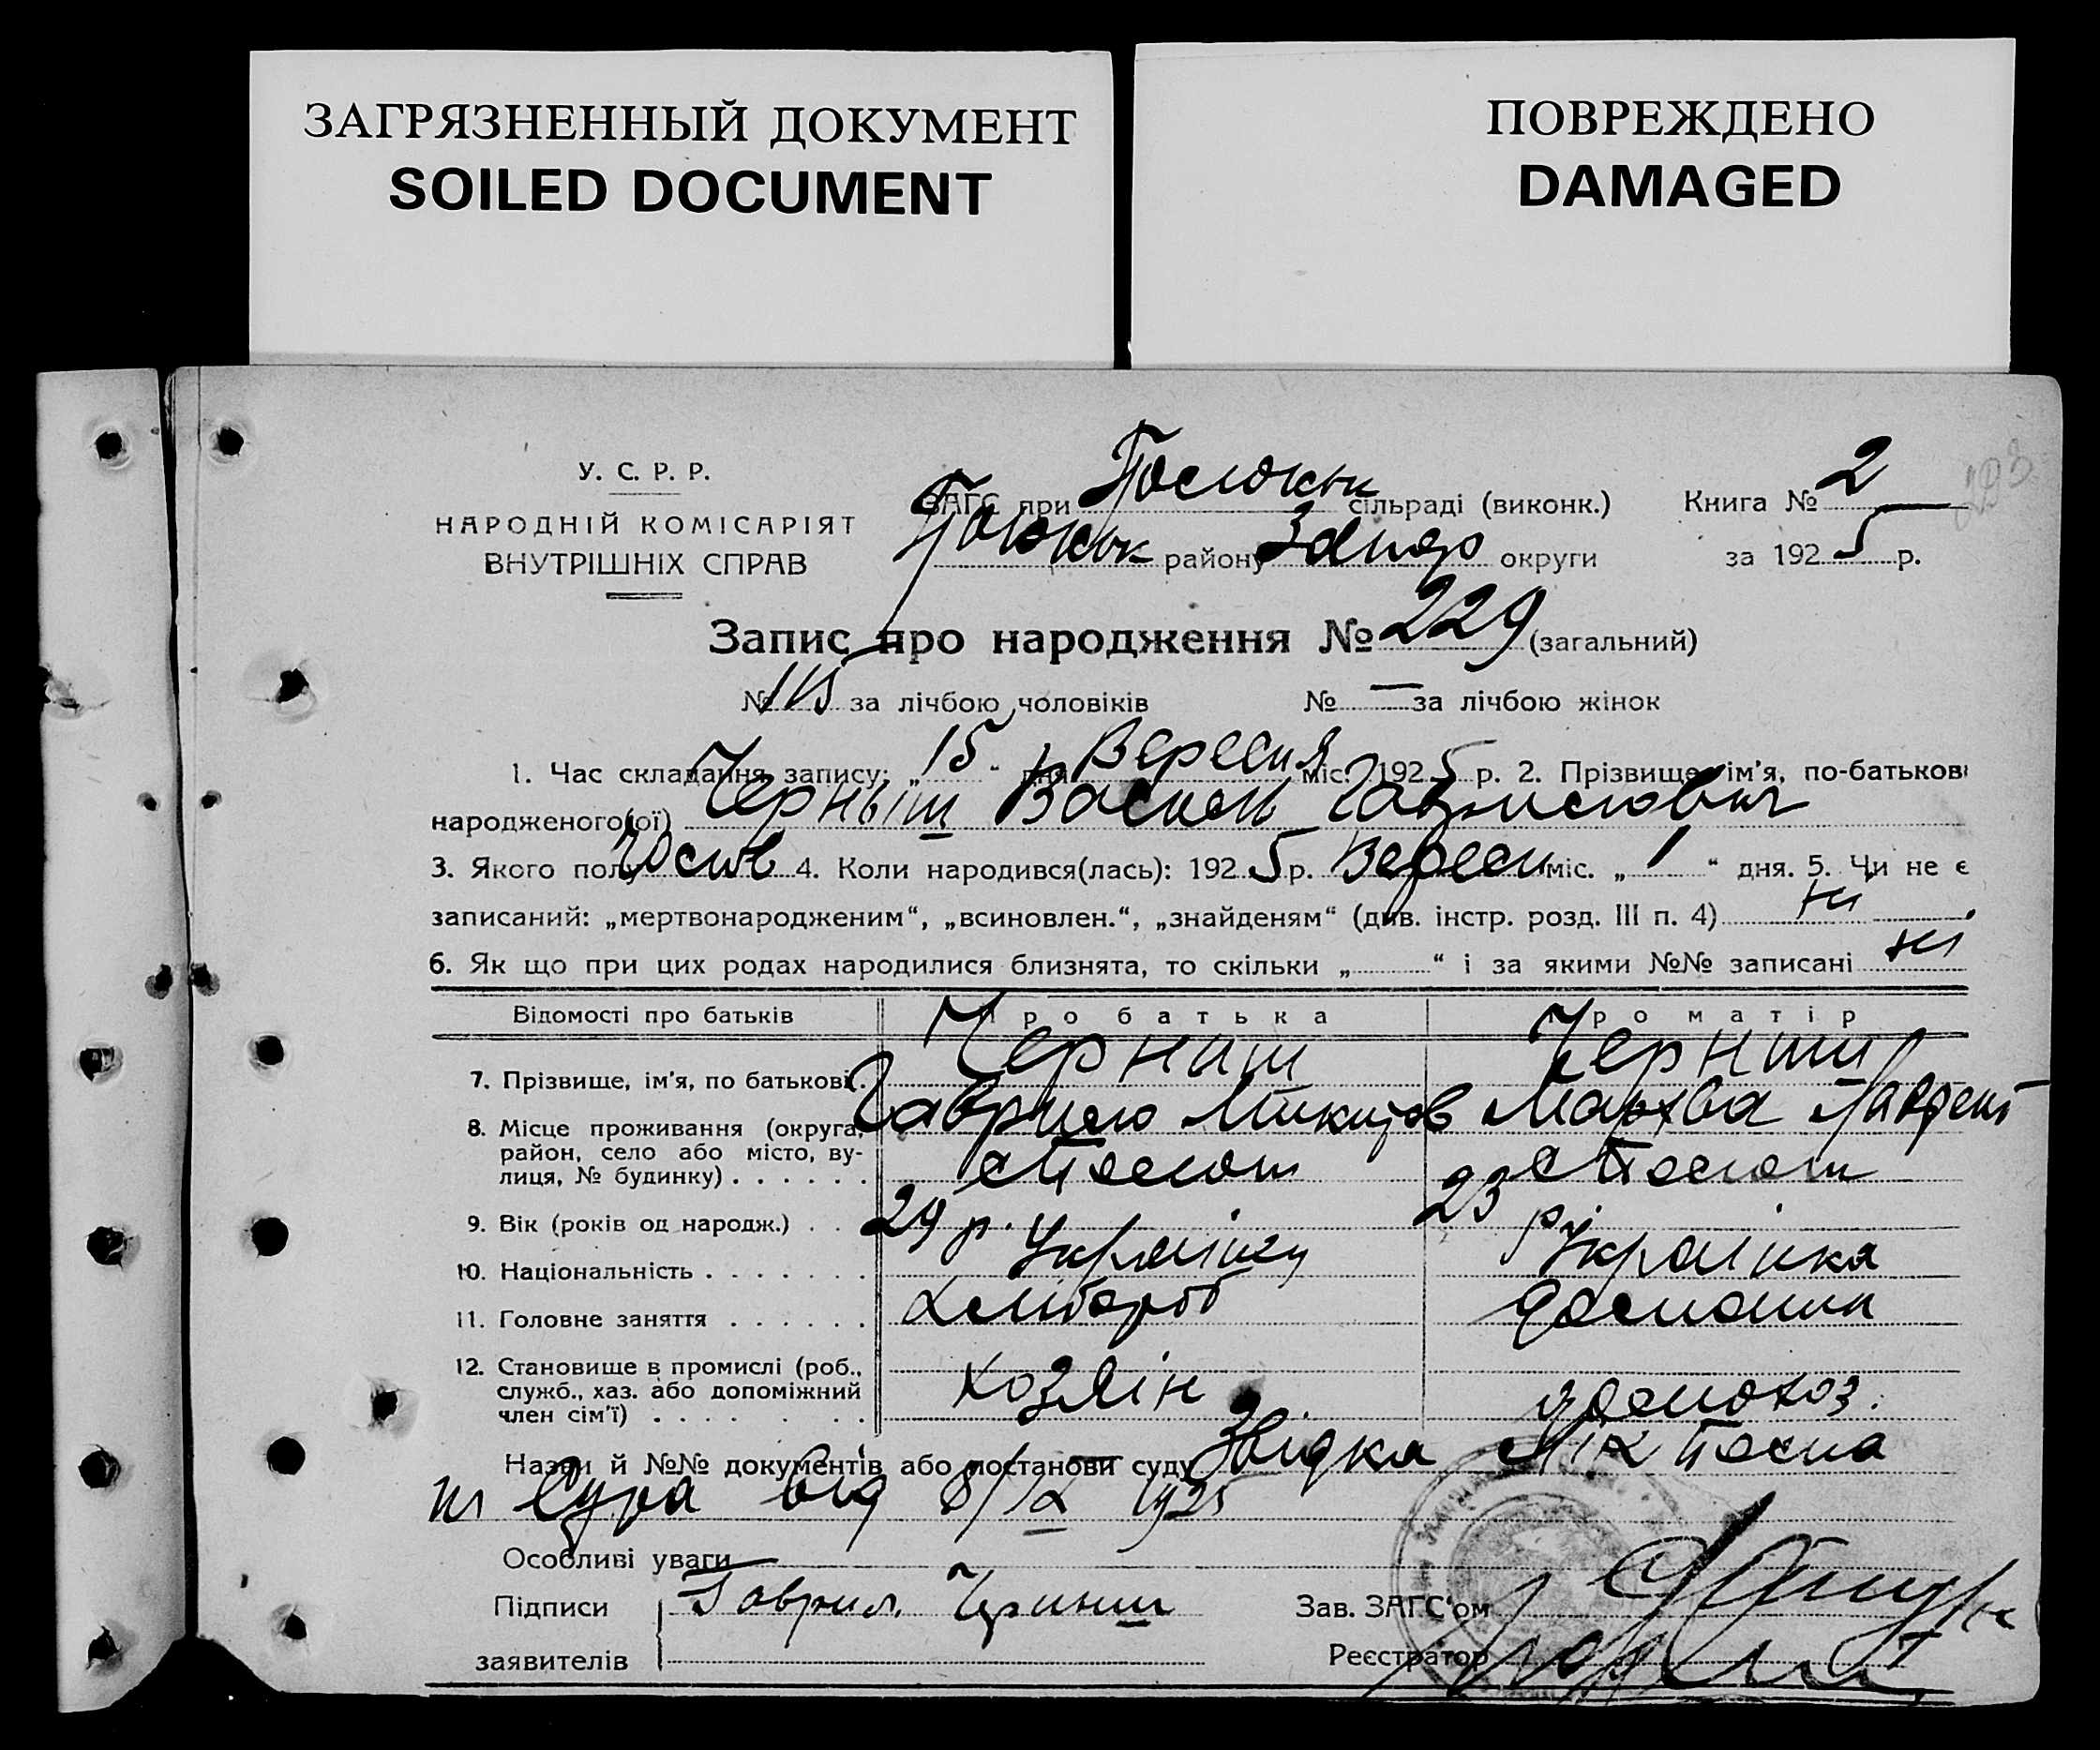 ЗАГРЯЗНЕННЫЙ ДОКУМЕНТ
SOILED DOCUMENT
ПОВРЕЖДЕНО
DAMAGED
293
У. С. Р. Р.
НАРОДНІЙ КОМІСАРІЯТ
ВНУТРІШНІХ СПРАВ
ЗАГС при сільраді (виконк.) Книга № 2
району Запор округи за 1925 р.
Запис про народження № 229 (загальний)
№ 115 за лічбою чоловіків № — за лічбою жінок
1. Час складання запису: „ 15 “ дня Вересня міс. 1925 р. 2. Прізвище, ім’я, по-батькові
народженого(ої) Черныш Василь Гаврилович
3. Якого полу чолов 4. Коли народився(лась): 1925 р. Вересн міс. „ 1 “ дня. 5. Чи не є
записаний: „мертвонародженим“, „всиновлен.“, „знайденям“ (див. інстр. розд. III п. 4) ні
6. Як що при цих родах народилися близнята, то скільки „ “ і за якими №№ записані ні
Відомості про батьків Про батька Про матір
7. Прізвище, ім’я, по батькові. Черниш Черниш
Гаврило Микитов Мархва Лаврент
8. Місце проживання (округа,
район, село або місто, ву-
лиця, № будинку)
9. Вік (років од народж.) 29 р. 23 р
10. Національність Українец Українка
11. Головне заняття хлібороб
12. Становище в промислі (роб.,
служб., хаз. або допоміжний
член сім’ї) хозяін домохоз.
Назви й №№ документів або постанови суду
від 8/IX 1925
Особливі уваги
Підписи Гаврил. Черниш Зав. ЗАГС‘ом
заявителів Реєстратор